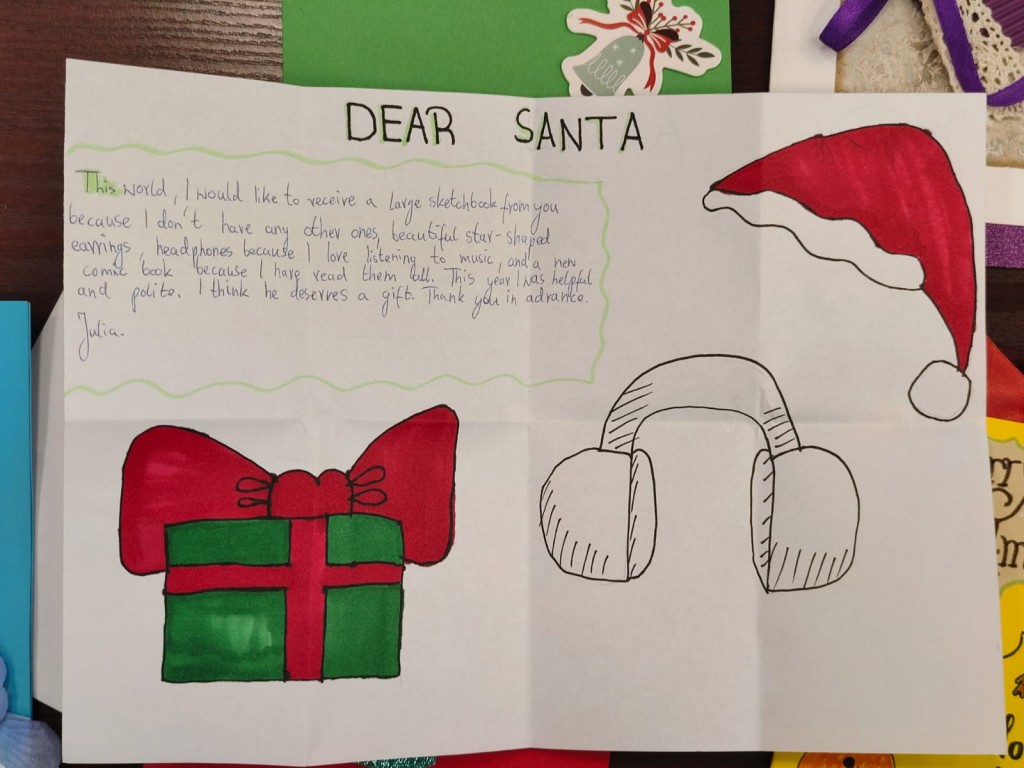 DEAR SANTA
This world, I would like to receive a large sketchbook from you
because I don't have any other ones, beautiful star-shaped
earrings, headphones because I love listening to music, and a new
comic book because I have read them all. This year I was helpful
and polite. I think he deserves a gift. Thank you in advance.
Julia.